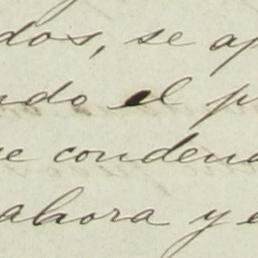 dos, se ap
ndo el p
e conden
ahora y e